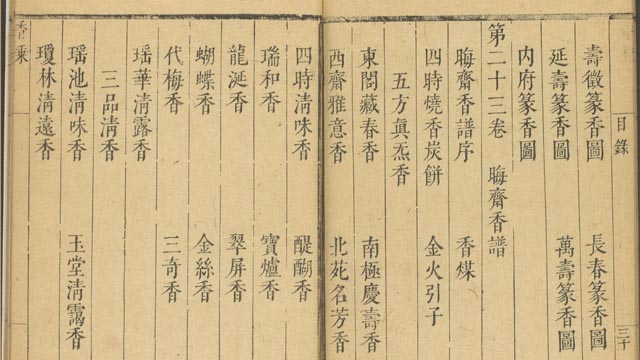 壽徵篆香圖 長春篆香圖
延壽篆香圖 萬壽篆香圖
內府篆香圖
第二十三卷 晦齋香譜
晦齋香譜序 香煤
四時燒香炭餅 金火引子
五方真炁香
東閣藏春香 南極慶壽香
西齋雅意香 北苑名芳香
四時清味香 醍醐香
瑞和香 寶爐香
龍涎香 翠屏香
蝴蝶香 金絲香
代梅香 三奇香
瑶華清露香
三品清香
瑶池清味香 玉堂清靄香
瓊林清遠香
目錄
三十
香乘